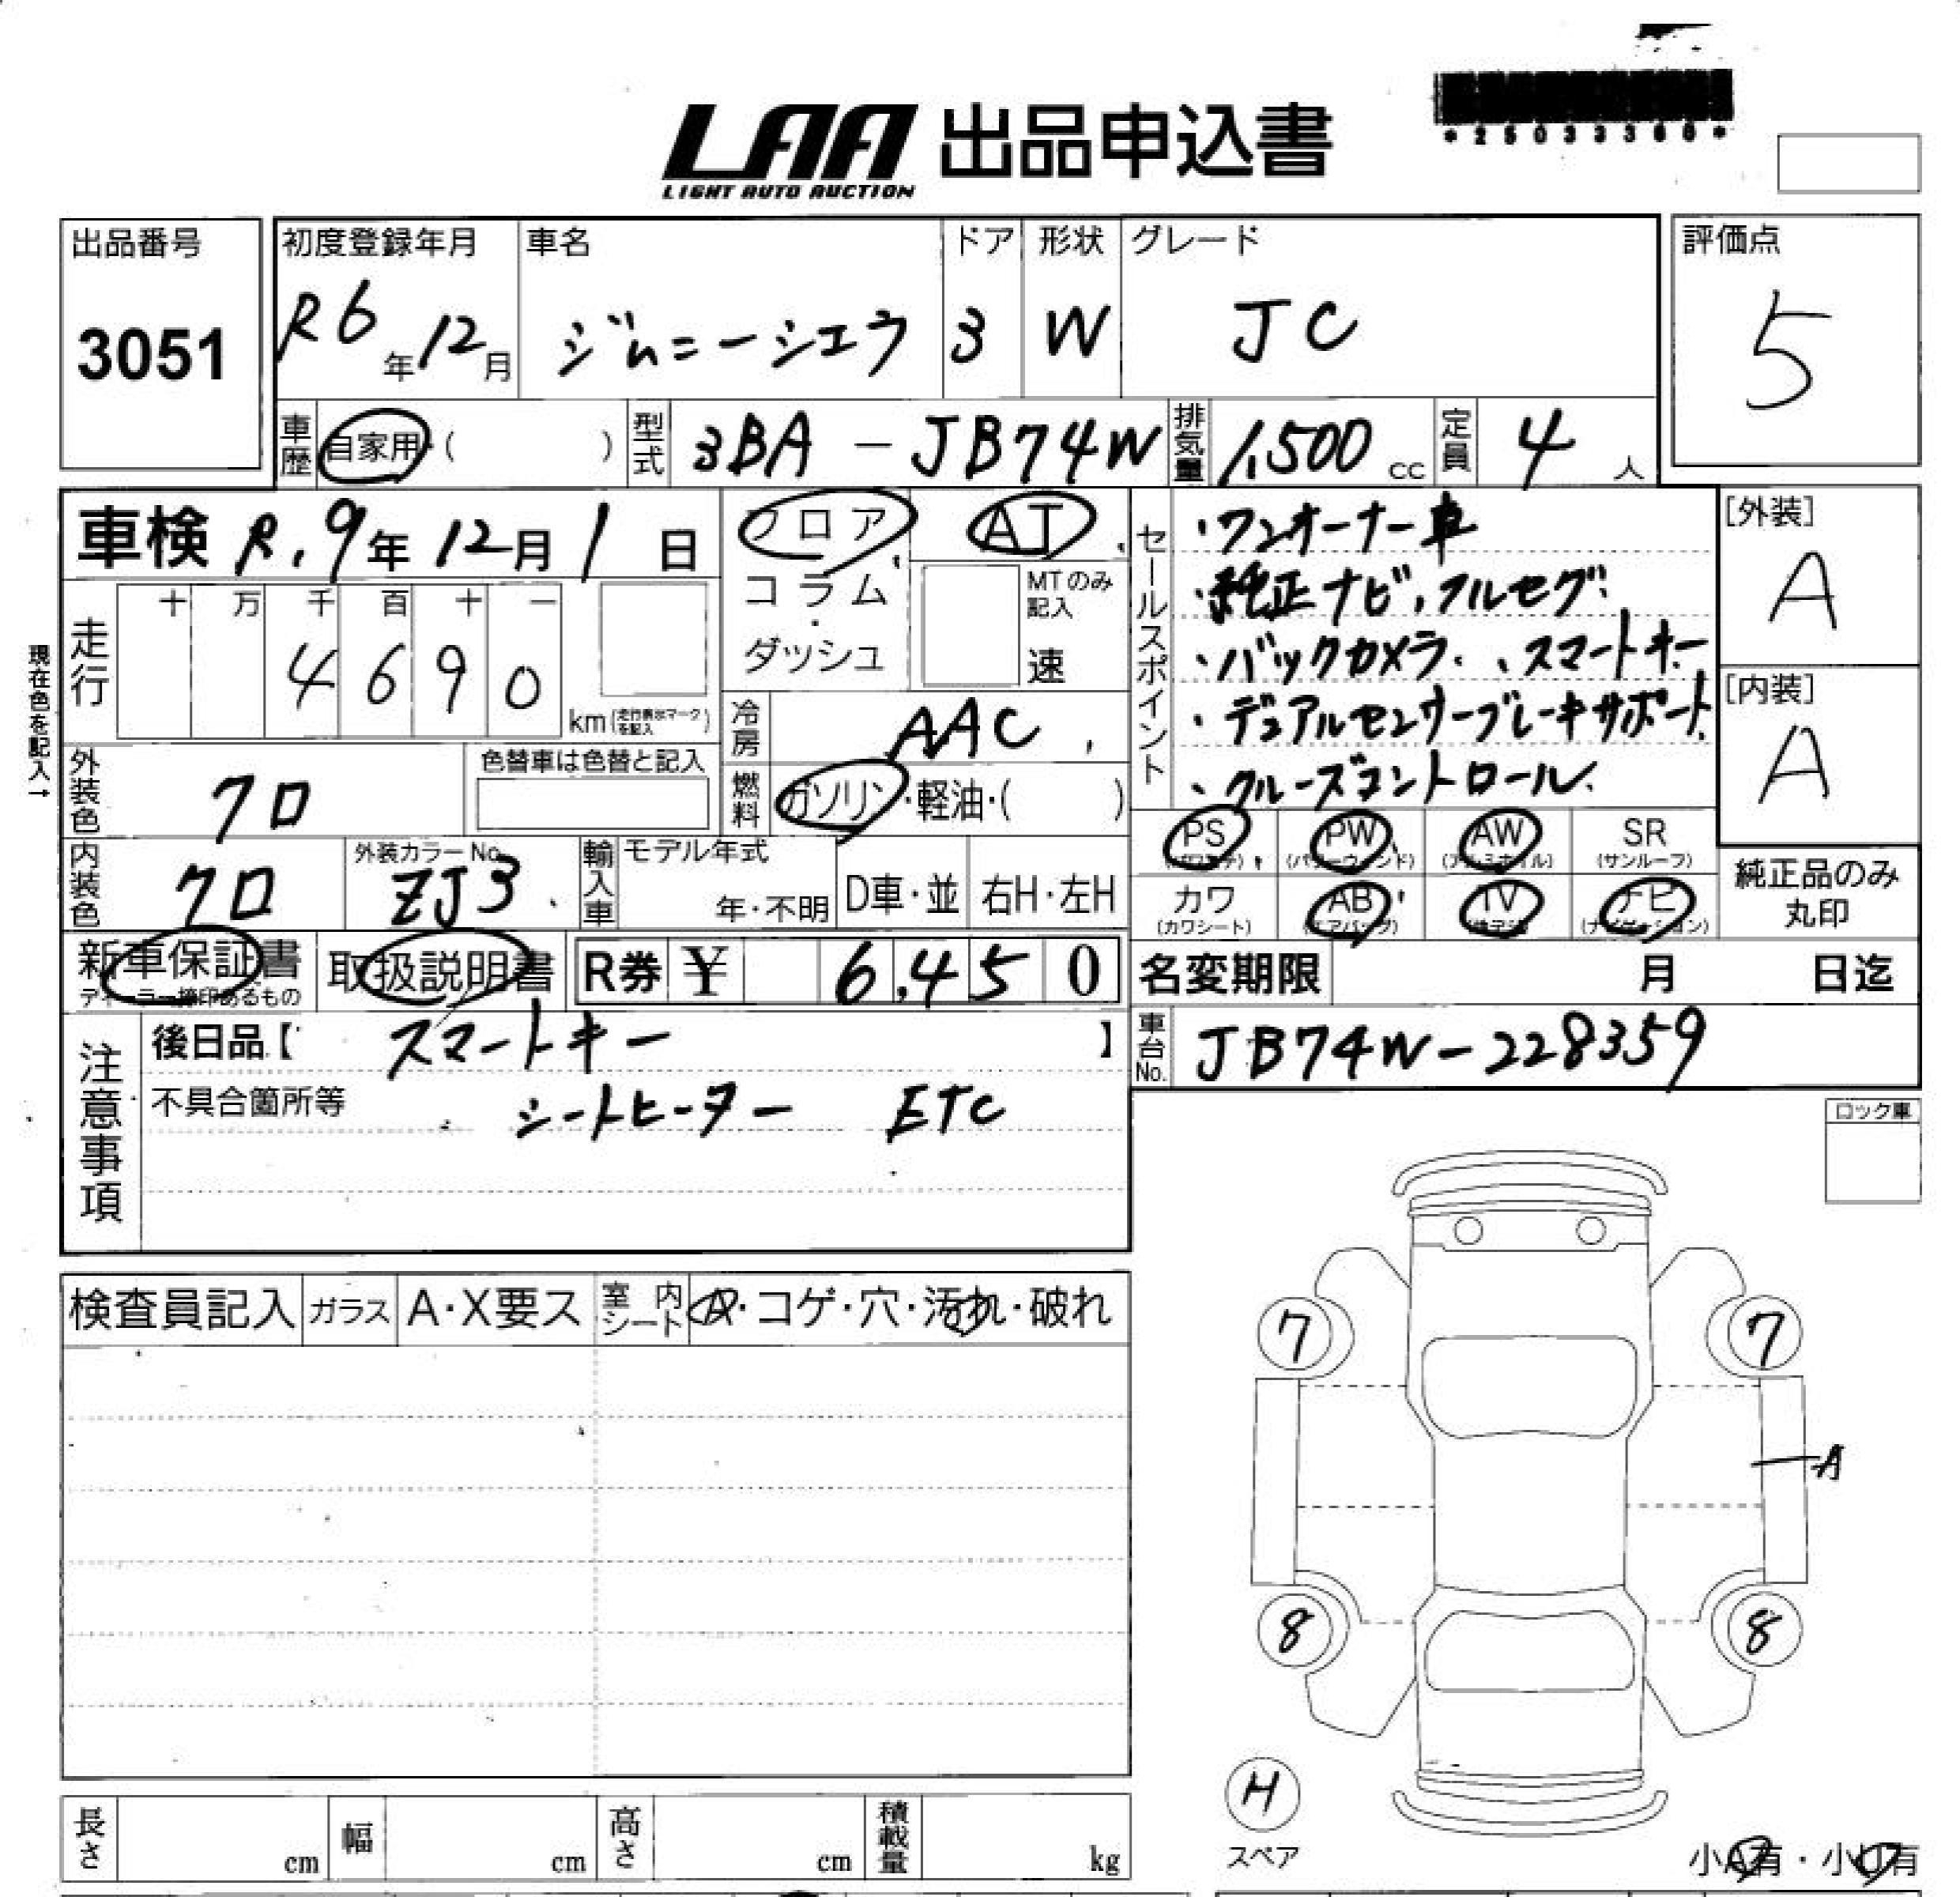 LAA 出品申込書
LIGHT AUTO AUCTION
出品番号
3051
初度登録年月
R6年12月
車名
ジムニーシエラ
ドア
3
形状
W
グレード
JC
評価点
5
車歴 自家用・( )
型式 3BA-JB74W
排気量 1,500cc
定員 4人
車検 R.9年12月1日
フロア
コラム・
ダッシュ
AT
MTのみ記入
速
走行
十 万 千 百 十 一
4 6 9 0
km(走行表示マークを記入)
現在色を記入→
冷房 AAC
燃料 ガソリン・軽油・( )
外装色 クロ
色替車は色替と記入
内装色 クロ
外装カラーNo.
ZJ3
輸入車
モデル年式
年・不明
D車・並
右H・左H
セールスポイント
・ワンオーナー車
・純正ナビ,フルセグ
・バックカメラ、スマートキー
・デュアルセンサーブレーキサポート
・クルーズコントロール
[外装]
A
[内装]
A
PS
PW (パワーウィンド)
AW (アルミホイル)
SR (サンルーフ)
カワ (カワシート)
AB (エアバッグ)
TV
ナビ (ナビゲーション)
純正品のみ
丸印
新車保証書
ディーラー捺印あるもの
取扱説明書
R券 ¥ 6,450
名変期限 月 日迄
車台No. JB74W-228359
注意事項
後日品【 スマートキー 】
不具合箇所等 シートヒーター ETC
ロック車
検査員記入
ガラス A・X要ス
室内シート
・コゲ・穴・汚れ・破れ
7 7
A
8 8
H
スペア
長さ cm
幅 cm
高さ cm
積載量 kg
小A有・小U有